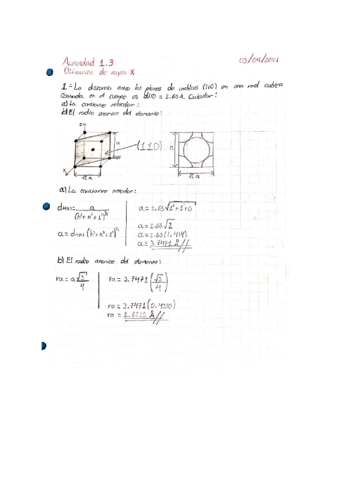 Actividad 1.3
03/04/2021
Difracción de rayos X
1.- La distancia entre los planos de indices (110) en una red cubica
centrada en el cuerpo es d110 = 2.65 A. Calcular:
a) La constante reticular:
b) El radio atomico del elemento:
(110)
a) La constante reticular:
a = 2.65 √1²+1²+0²
a = 2.65 √2
a = 2.65 (1.414)
a = 3.7471 Å //
b) El radio atomico del elemento:
ra = a √3/4
ra = 3.7471 (√3/4)
ra = 3.7471 (0.4330)